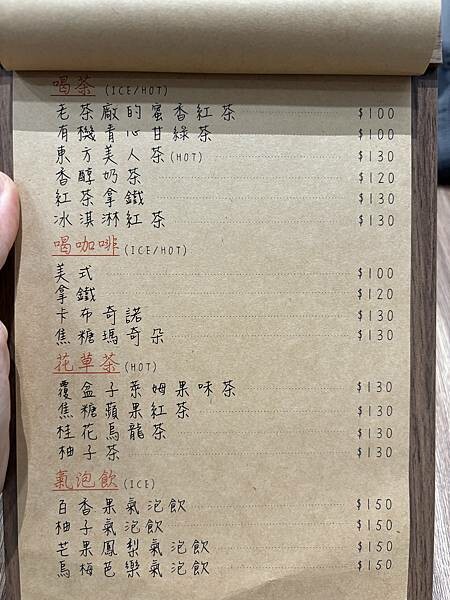 喝茶 (ICE/HOT)
老茶廠的蜜香紅茶 $100
有機青心甘綠茶 $100
東方美人茶(HOT) $130
香醇奶茶 $120
紅茶拿鐵 $130
冰淇淋紅茶 $130
喝咖啡 (ICE/HOT)
美式 $100
拿鐵 $120
卡布奇諾 $130
焦糖瑪奇朵 $130
花草茶 (HOT)
覆盆子萊姆果味茶 $130
焦糖蘋果紅茶 $130
桂花烏龍茶 $130
柚子茶 $130
氣泡飲 (ICE)
百香果氣泡飲 $150
柚子氣泡飲 $150
芒果鳳梨氣泡飲 $150
烏梅芭樂氣泡飲 $150